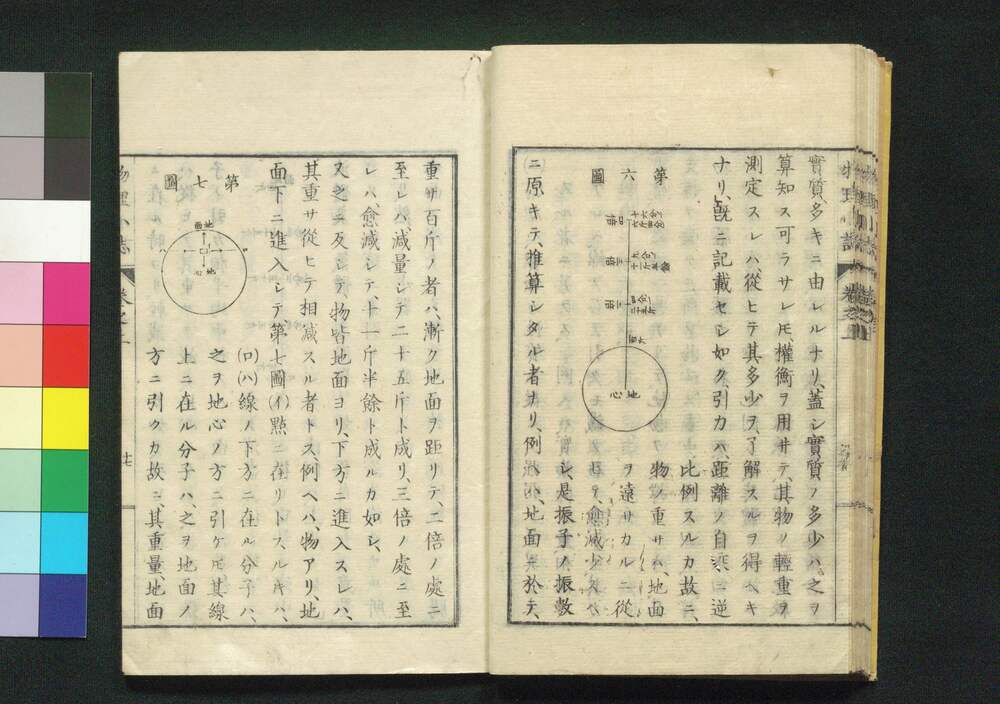 實質、多キニ由レルナリ、蓋シ實質ノ多少ハ、之ヲ
算知ス可ラサレ𪜈、權衡ヲ用井テ、其物ノ輕重ヲ
測定スレハ、從ヒテ其多少ヲ、了解スルヲ得ヘキ
ナリ、既ニ記載セシ如ク、引力ハ、距離ノ自乘ニ逆
第六圖
地心
比例スルカ故ニ、
物ノ重サハ、地面
ヲ遠サカルニ從
ヒテ、愈減少スヘ
シ、是振子ノ振數
ニ原キテ、推算シタル者ナリ、例ヘハ、地面ニ於テ、
重サ百斤ノ者ハ、漸ク地面ヲ距リテ、二倍ノ處ニ
至レハ、減量シテ、二十五斤ト成リ、三倍ノ處ニ至
レハ、愈減シテ、十一斤半餘ト成ルカ如シ、
又之ニ反シテ、物皆地面ヨリ、下方ニ進入スレハ、
其重サ從ヒテ相減スル者トス、例ヘハ、物アリ、地
面下ニ進入シテ、第七圖(イ)點ニ在リトスルキハ、
第七圖
(ロ)(ハ)線ノ下方ニ在ル分子ハ、
之ヲ地心ノ方ニ引ケ𪜈、其線
上ニ在ル分子ハ、之ヲ地面ノ
方ニ引クカ故ニ、其重量、地面
物理小誌
卷之二
十七